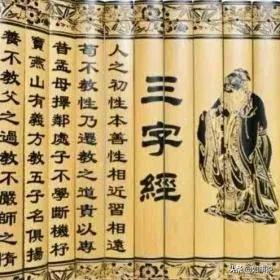 三字經
人之初性本善性相近習相遠
苟不教性乃遷教之道貴以專
昔孟母擇鄰處子不學斷機杼
竇燕山有義方教五子名俱揚
養不教父之過教不嚴師之惰